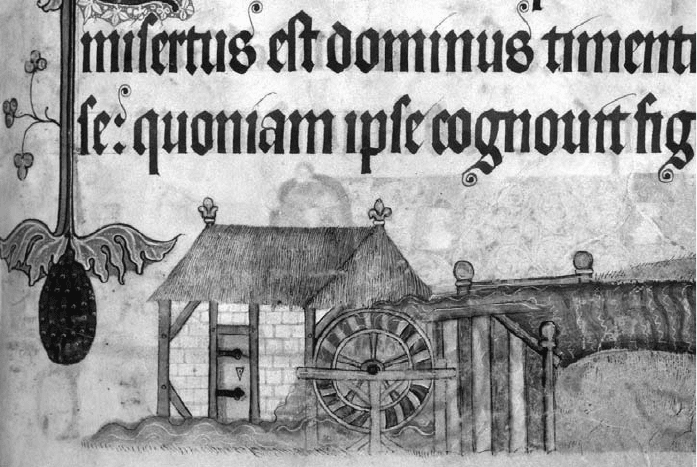 misertus est dominus timenti
se: quoniam ipse cognouit fig